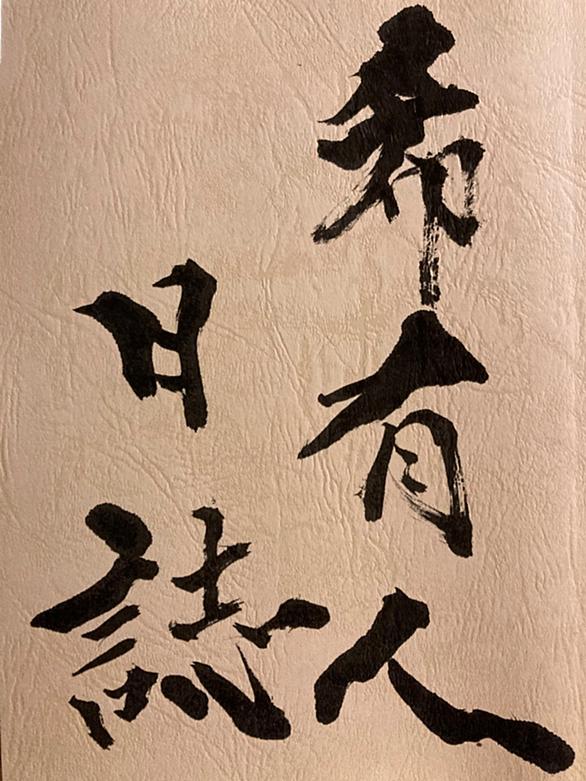 希有人
日誌